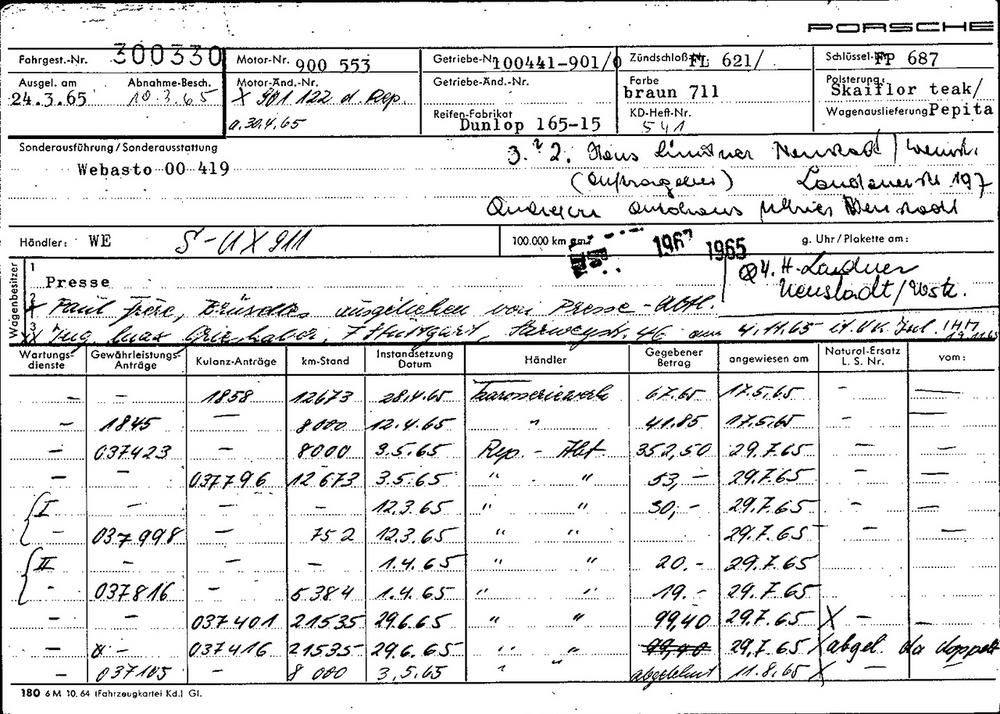 PORSCHE
Fahrgest.-Nr. 300330 Motor-Nr. 900 553 Getriebe-Nr. 100441-901/0 Zündschloß FL 621/ Schlüssel- FP 687
Ausgel. am Abnahme-Besch. Motor-Änd.-Nr. Getriebe-Änd.-Nr. Farbe Polsterung:
24.3.65 10.3.65 X 901 122 d. Rep. braun 711 Skaiflor teak/
a. 30.4.65 Reifen-Fabrikat Dunlop 165-15 KD-Heft-Nr. 541 Wagenauslieferung Pepita
Sonderausführung/Sonderausstattung
Webasto 00 419
3. 2. Hans Lindner Neustadt/Weinstr.
(Auftraggeber) Landauerstr 197
Autohaus Neustadt
Händler: WE S-UX 911 100.000 km am: 1967 1965 g. Uhr/Plakette am:
Wagenbesitzer
1 Presse
4. H. Lindner
Neustadt/Wstr.
2 Paul Frère, Brüssel, ausgeliehen von Presse-Abtl.
3 Ing. 7 Stuttgart, 46 am 4.11.65
Wartungsdienste Gewährleistungs-Anträge Kulanz-Anträge km-Stand Instandsetzung Datum Händler Gegebener Betrag angewiesen am Natural-Ersatz L. S. Nr. vom:
– – 1858 12673 28.4.65 Karosseriewerk 67.65 17.5.65 – –
– 1845 – 8000 12.4.65 " 41.85 17.5.65 – –
– 037423 – 8000 3.5.65 Rep. - Abt. 352,50 29.7.65 – –
– – 037796 12673 3.5.65 " " 53,– 29.7.65 – –
I – – – 12.3.65 " " 30,– 29.7.65 – –
– 037998 – 752 12.3.65 " " 29.7.65 – –
II – – – 1.4.65 " " 20.– 29.7.65
– 037816 – 5384 1.4.65 " " 19.– 29.7.65
037401 21535 29.6.65 " " 99,40 29.7.65 X – –
– – 037416 21535 29.6.65 " " 99,40 29.7.65 X abgel. da doppelt
– 037105 – 8000 3.5.65 " " abgelehnt 11.8.65 X –
180 6 M 10. 64 (Fahrzeugkartei Kd.) Gl.